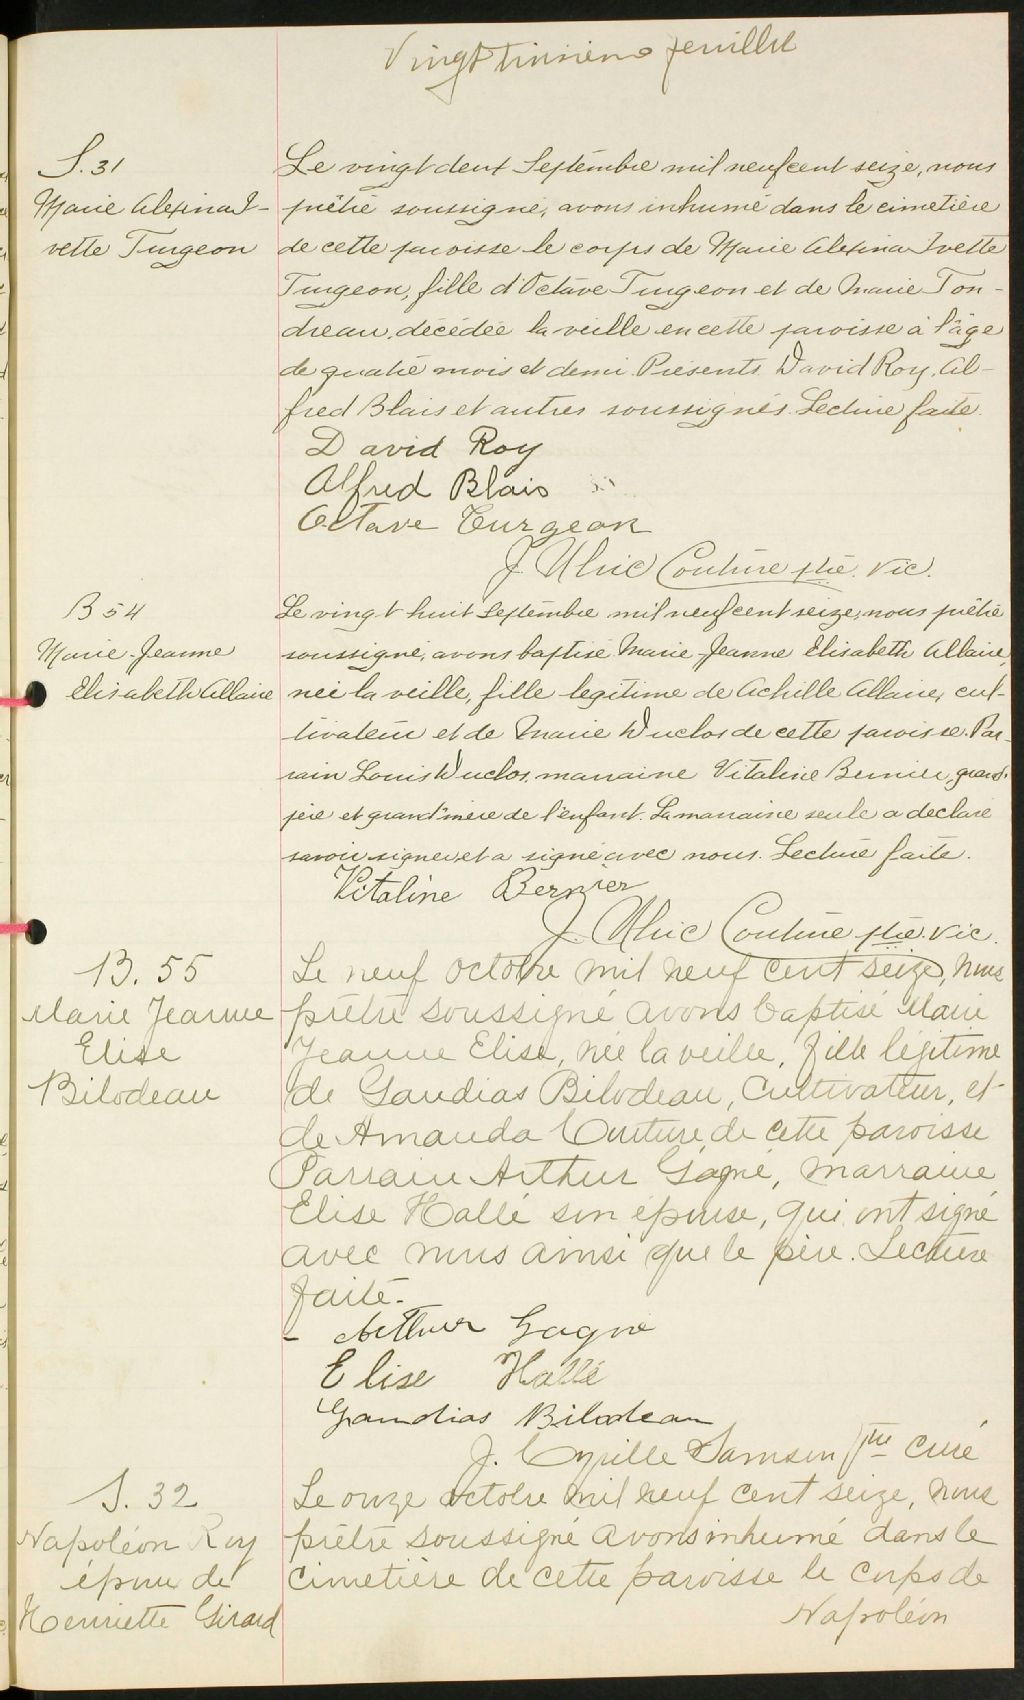 Vingt troisième feuillet
S. 31
Marie Alexina I-
vette Turgeon
Le vingt deux Septembre mil neuf cent seize, nous
prêtre soussigné, avons inhumé dans le cimetière
de cette paroisse le corps de Marie Alexina Ivette
Turgeon, fille d'Octave Turgeon et de Marie Ton-
dreau, décédée la veille en cette paroisse à l'âge
de quatre mois et demi. Présents David Roy, Al-
fred Blais et autres soussignés. Lecture faite.
David Roy
Alfred Blais
Octave Turgeon
J. Ulric Couture ptre. vic.
B 54
Marie-Jeanne
Elisabeth Allaire
Le vingt huit Septembre mil neuf cent seize, nous prêtre
soussigné, avons baptisé Marie-Jeanne Elisabeth Allaire,
née la veille, fille legitime de Achille Allaire, cul-
tivateur et de Marie Duclos de cette paroisse. Par-
rain Louis Duclos, marraine Vitaline Bernier, grand-
père et grand'mère de l'enfant. La marraine seule a déclaré
savoir signer et a signé avec nous. Lecture faite.
Vitaline Bernier
J. Ulric Couture ptre. vic.
B. 55
Marie Jeanne
Elise
Bilodeau
Le neuf octobre mil neuf cent seize, nous
prêtre soussigné avons baptisé Marie
Jeanne Elise, née la veille, fille légitime
de Gaudias Bilodeau, Cultivateur, et
de Amanda Couture de cette paroisse
Parrain Arthur Gagné, marraine
Elise Hallé son épouse, qui ont signé
avec nous ainsi que le père. Lecture
faite.
- Arthur Gagné
Elise Hallé
Gaudias Bilodeau
J. Cyrille Samson Ptre curé
S. 32
Napoléon Roy
époux de
Henriette Girard
Le onze octobre mil neuf cent seize, nous
prêtre soussigné avons inhumé dans le
cimetière de cette paroisse le corps de
Napoléon